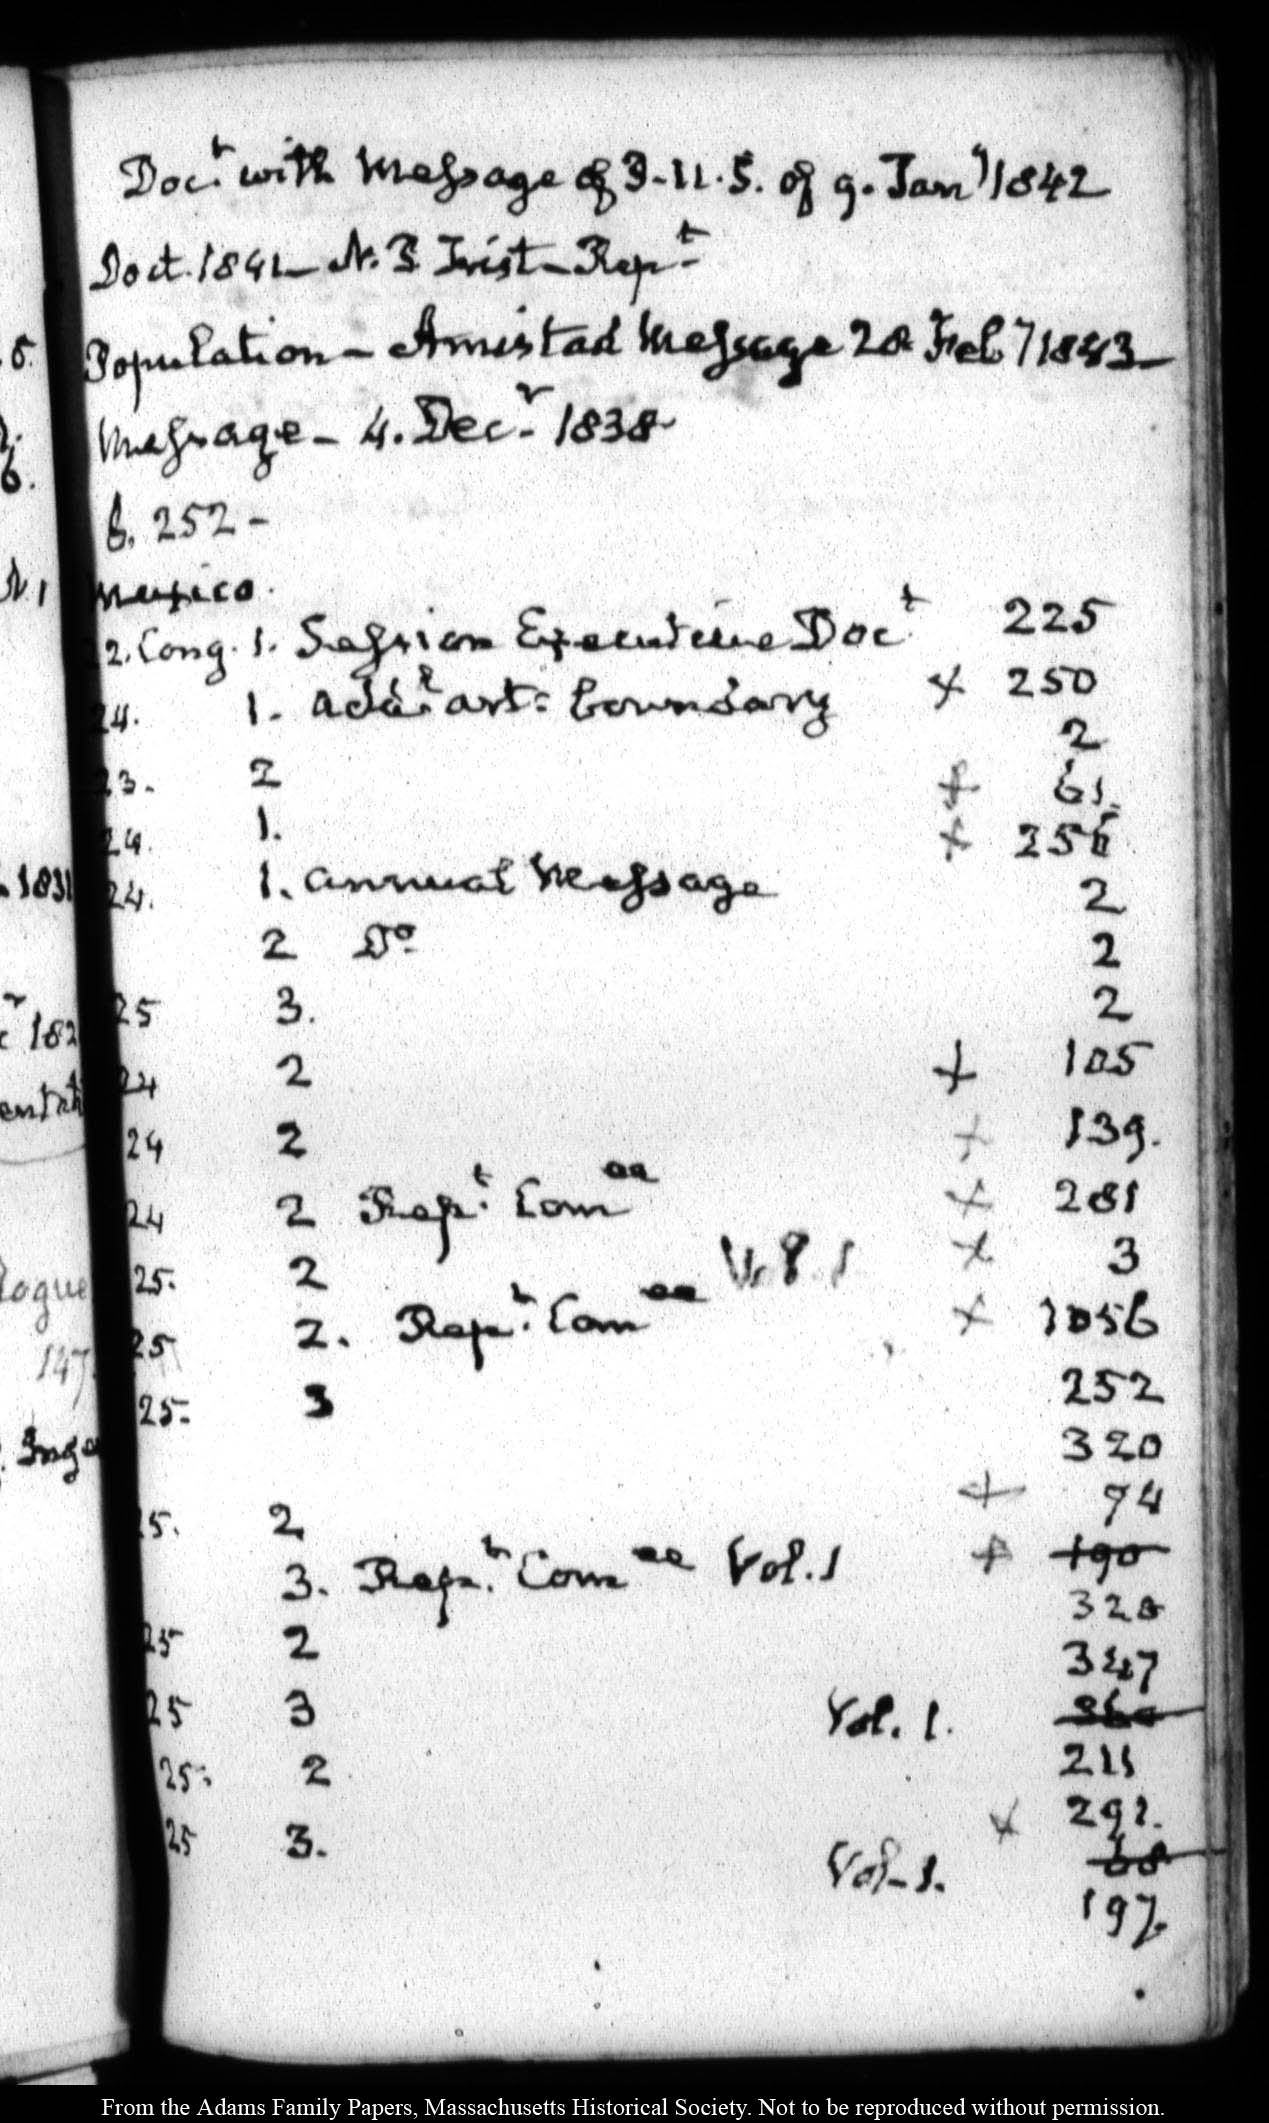 Doct. with Message of P. U. S. of 9. Jany 1842
Doct. 1841 — N. P. Trist — Rept
5. Population — Amistad Message 28 Feby 1843 —
Message — 4. Decr 1838
6. 252 —
N 1 Mexico.
22. Cong. 1. Session Executive Doct 225
24. 1. addl art: boundary × 250
2
23. 2 × 61.
24. 1. × 256
1831 24. 1. annual Message 2
2 Do 2
25 3. 2
182 24 2 × 105
24 2 × 139.
24 2 Rept. Comee × 281
25. 2 Vol. 1 × 3
25 2. Rept. Comee × 1056
147
25. 3 252
320
25. 2 × 74
3. Rept. Comee Vol. 1 × 190
320
25 2 347
25 3 Vol. 1. 360
25. 2 211
× 291.
25 3. Vol- 1. 68
197.
From the Adams Family Papers, Massachusetts Historical Society. Not to be reproduced without permission.